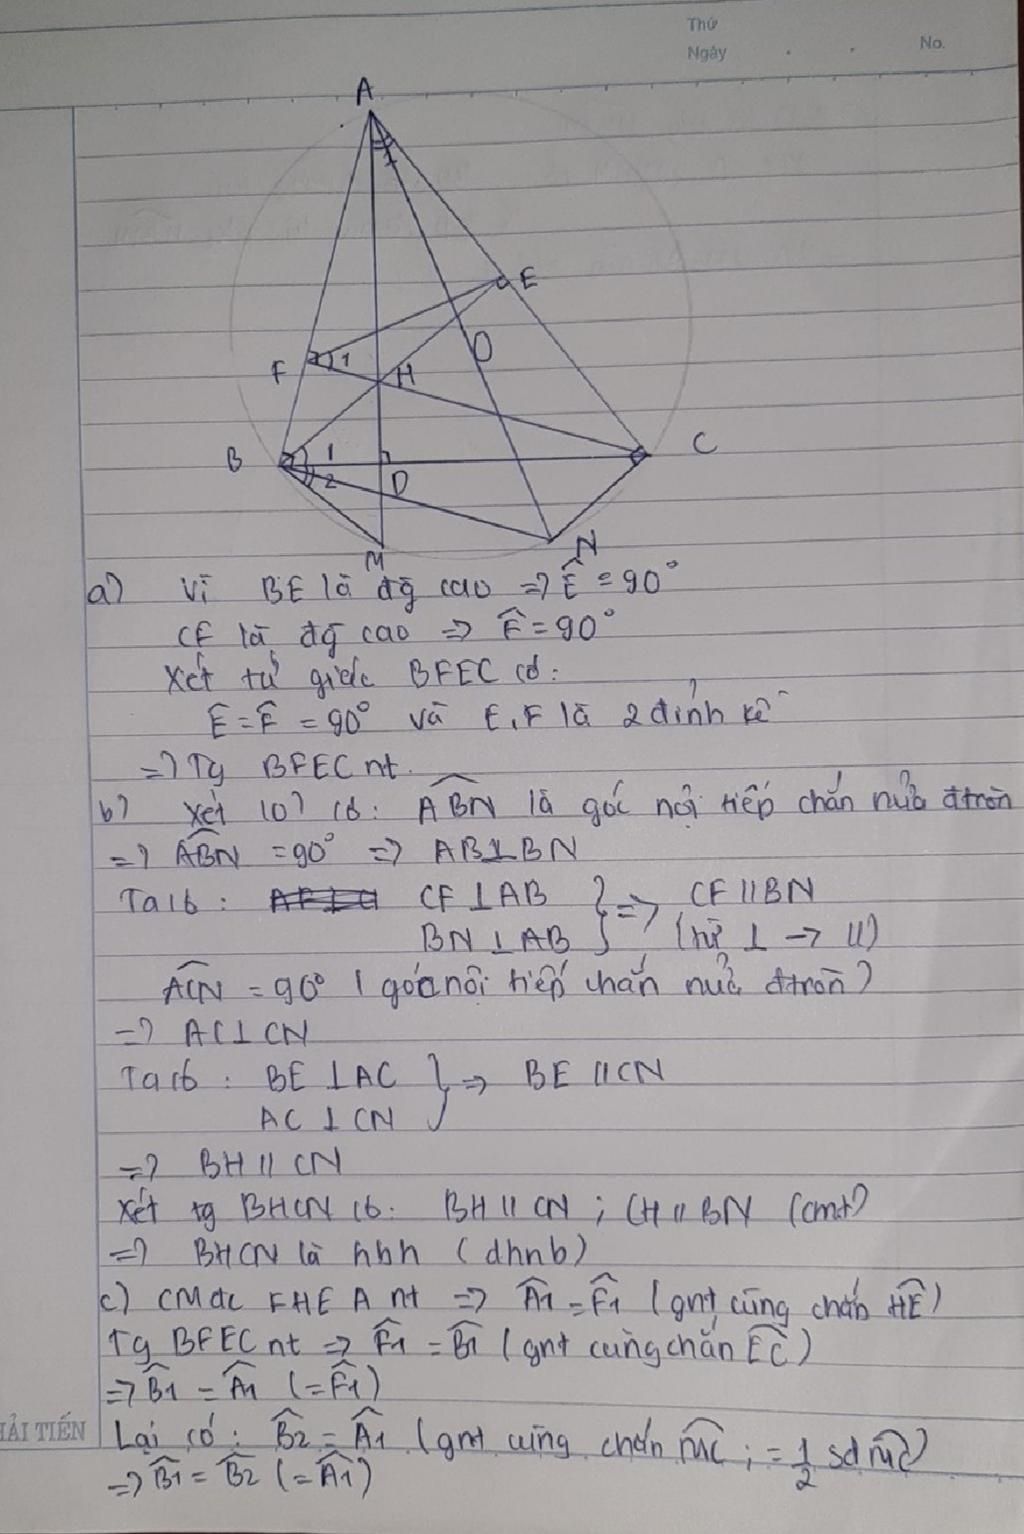 Thứ
Ngày . . No.
A
1
E
F 1 O
H
B 1 C
2 D
M N
a) Vì BE là đg cao => Ê = 90°
CF là đg cao => F̂ = 90°
Xét tứ giác BFEC có:
Ê = F̂ = 90° và E, F là 2 đỉnh kề
=> Tg BFEC nt.
b) Xét (O) có: \widehat{ABN} là góc nội tiếp chắn nửa đtròn
=> \widehat{ABN} = 90° => AB⊥BN
Ta có: CF⊥AB } => CF // BN
BN⊥AB (từ ⊥ -> //)
\widehat{ACN} = 90° (góc nội tiếp chắn nửa đtròn)
=> AC⊥CN
Ta có: BE⊥AC } => BE // CN
AC⊥CN
=> BH // CN
Xét tg BHCN có: BH // CN ; CH // BN (cmt)
=> BHCN là hbh (dhnb)
c) CM đc FHEA nt => Â1 = F̂1 (gnt cùng chắn \widehat{HE})
Tg BFEC nt => F̂1 = B̂1 (gnt cùng chắn \widehat{EC})
=> B̂1 = Â1 (= F̂1)
HẢI TIẾN Lại có: B̂2 = Â1 (gnt cùng chắn \widehat{MC} ; = 1/2 sđ \widehat{MC})
=> B̂1 = B̂2 (= Â1)